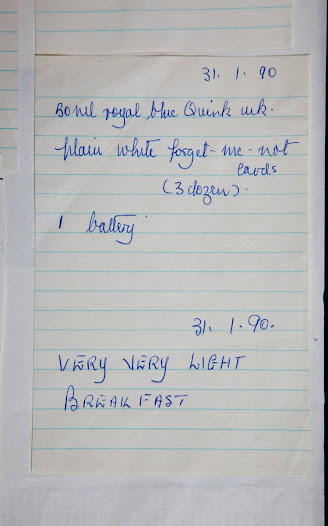 31. 1. 90
50ml royal blue Quink ink.
plain white forget-me-not
cards
(3 dozen).
1 battery
31. 1. 90.
VERY VERY LIGHT
BREAKFAST